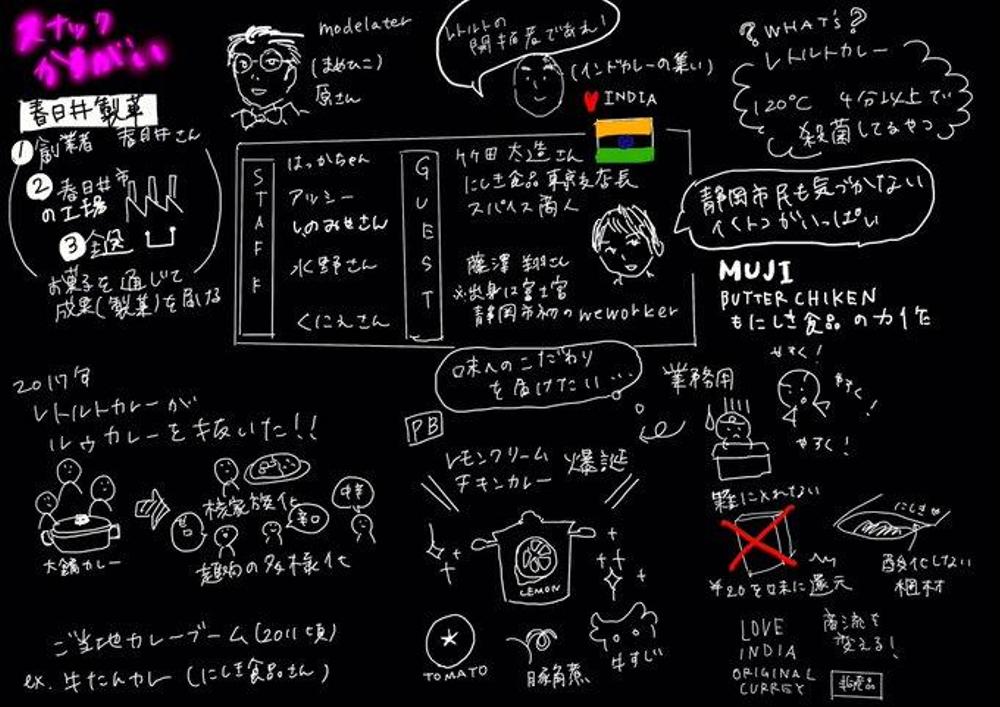 スナック
かすがい
春日井製菓
1 創業者 春日井さん
2 春日井市
の工場
3
お菓子を通じて
成果(製菓)を届ける
modelater
(まめひこ)
原さん
レトルトの
開拓者であれ!
(インドカレーの集い)
INDIA
WHAT'S?
レトルトカレー
120℃ 4分以上で
殺菌してるやつ
STAFF
はっかちゃん
アッシー
しのみせさん
水野さん
くにえさん
GUEST
竹田大造さん
にしき食品東京支店長
スパイス商人
藤澤 さん
※出身は富士宮
静岡市初のweworker
静岡市民も気づかない
イイトコがいっぱい
MUJI
BUTTER CHIKEN
もにしき食品の力作
2017年
レトルトカレーが
ルゥカレーを抜いた!!
大鍋カレー
核家族化
甘口
辛口
中辛
趣向の多様化
ご当地カレーブーム(2011頃)
ex. 牛たんカレー (にしき食品さん)
味へのこだわり
を届けたい...
PB
レモンクリーム
チキンカレー 爆誕
LEMON
TOMATO
豚角煮
牛すじ
業務用
やすく!
やすく!
やすく!
箱にいれない
¥20を味に還元
にしき
酸化しない
梱材
LOVE
INDIA
ORIGINAL
CURREY
商流を
変える!
非売品